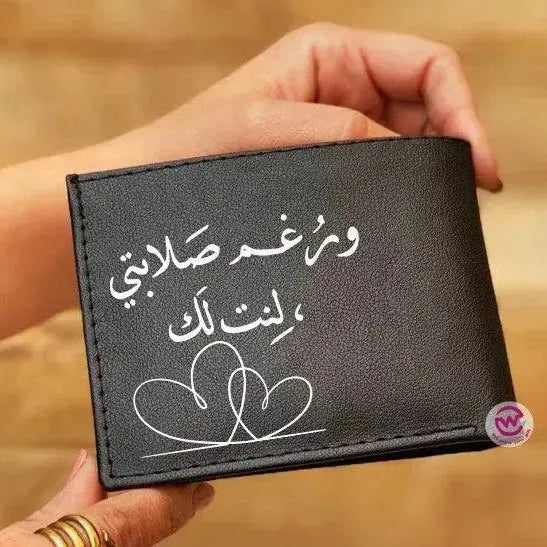 ورُغم صَلابتي
، لِنت لَك